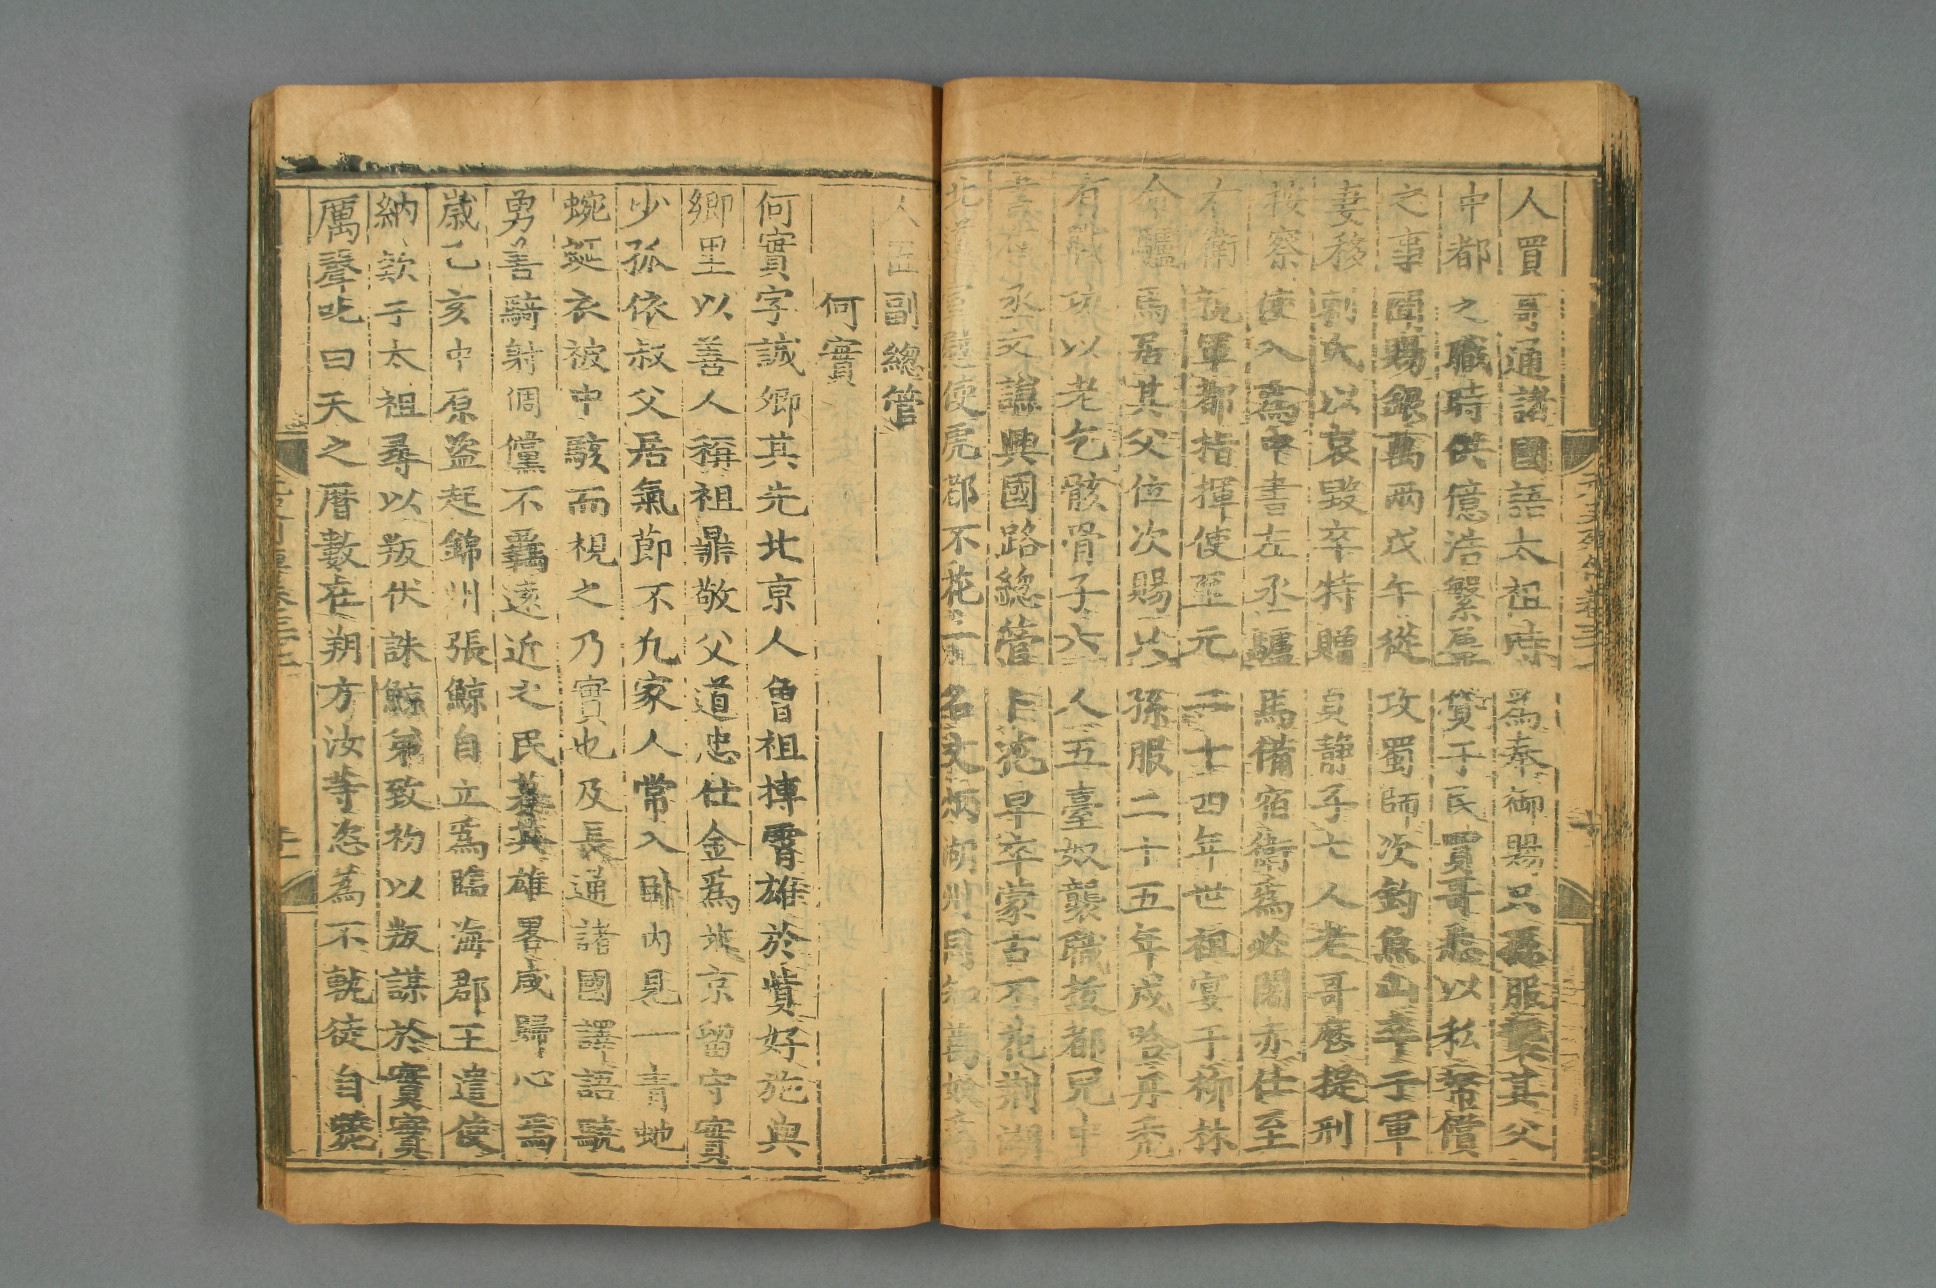 人買哥通諸國語太祖時為奉御賜只為服襲其父
中都之職時供億浩繁屢貸于民買哥悉以私帑償
之事聞賜銀萬兩戊午從攻蜀師次釣魚山卒于軍
妻移剌氏以哀毀卒特贈貞靜子七人老哥歷提刑
按察使入為中書左丞驢馬備宿衛為必闍赤仕至
右衛親軍都指揮使至元二十四年世祖宴于柳林
命驢馬居其父位次賜只孫服二十五年戍哈丹禿
有戰功以老乞骸骨子六人五臺奴襲職拔都兒中
書左丞文謙興國路總管卜花早卒蒙古不花荊湖
北道宣慰使虎都不花一名文炳湖州同知萬奴
人匠副總管
何實
何實字誠卿其先北京人曾祖摶霄雄於貲好施與
鄉里以善人稱祖鼎敬父道忠仕金為北京留守實
少孤依叔父居氣節不凡家人常入臥內見一青虵
蜿蜒衣被中駭而視之乃實也及長通諸國譯語驍
勇善騎射倜儻不羈遠近之民慕其雄畧咸歸心焉
歲乙亥中原盜起錦州張鯨自立為臨海郡王遣使
納欵于太祖尋以叛伏誅鯨弟致初以叛謀於實實
厲聲叱曰天之曆數在朔方汝等恣為不軌徒自斃